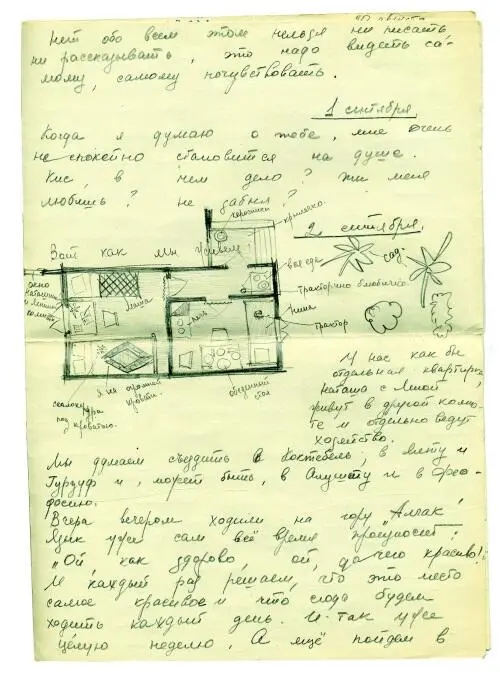 Нет обо всем этом нельзя ни писать
ни рассказывать, это надо видеть са-
мому, самому почувствовать.
1 сентября.
Когда я думаю о тебе, мне очень
не спокойно становится на душе.
Кис, в чем дело? Ты меня
любишь? не забыл?
керосинки
крылечко.
2 сентября.
Вот как мы живем
сад.
окно
Наташиной
и Лёниной
комнаты
Маша
печь
Тракторино бибичка.
Нина
трактор
Я на огромной
кровати.
под кроватью.
обеденный
стол
У нас как бы
отдельная квартира,
Наташа с Лёной
живут в другой комна-
те и отдельно ведут
хозяйство.
Мы думаем съездить в Коктебель, в Ялту и
Гурзуф и, может быть, в Алушту и в Фео-
досию.
Вчера вечером ходили на гору „Алчак“
Язык уже сам всё время произносит:
„Ой, как здорово, ой, до чего красиво!“
И каждый раз решаем, что это место
самое красивое и что сюда будем
ходить каждый день. И так уже
целую неделю. А ещё пойдем в